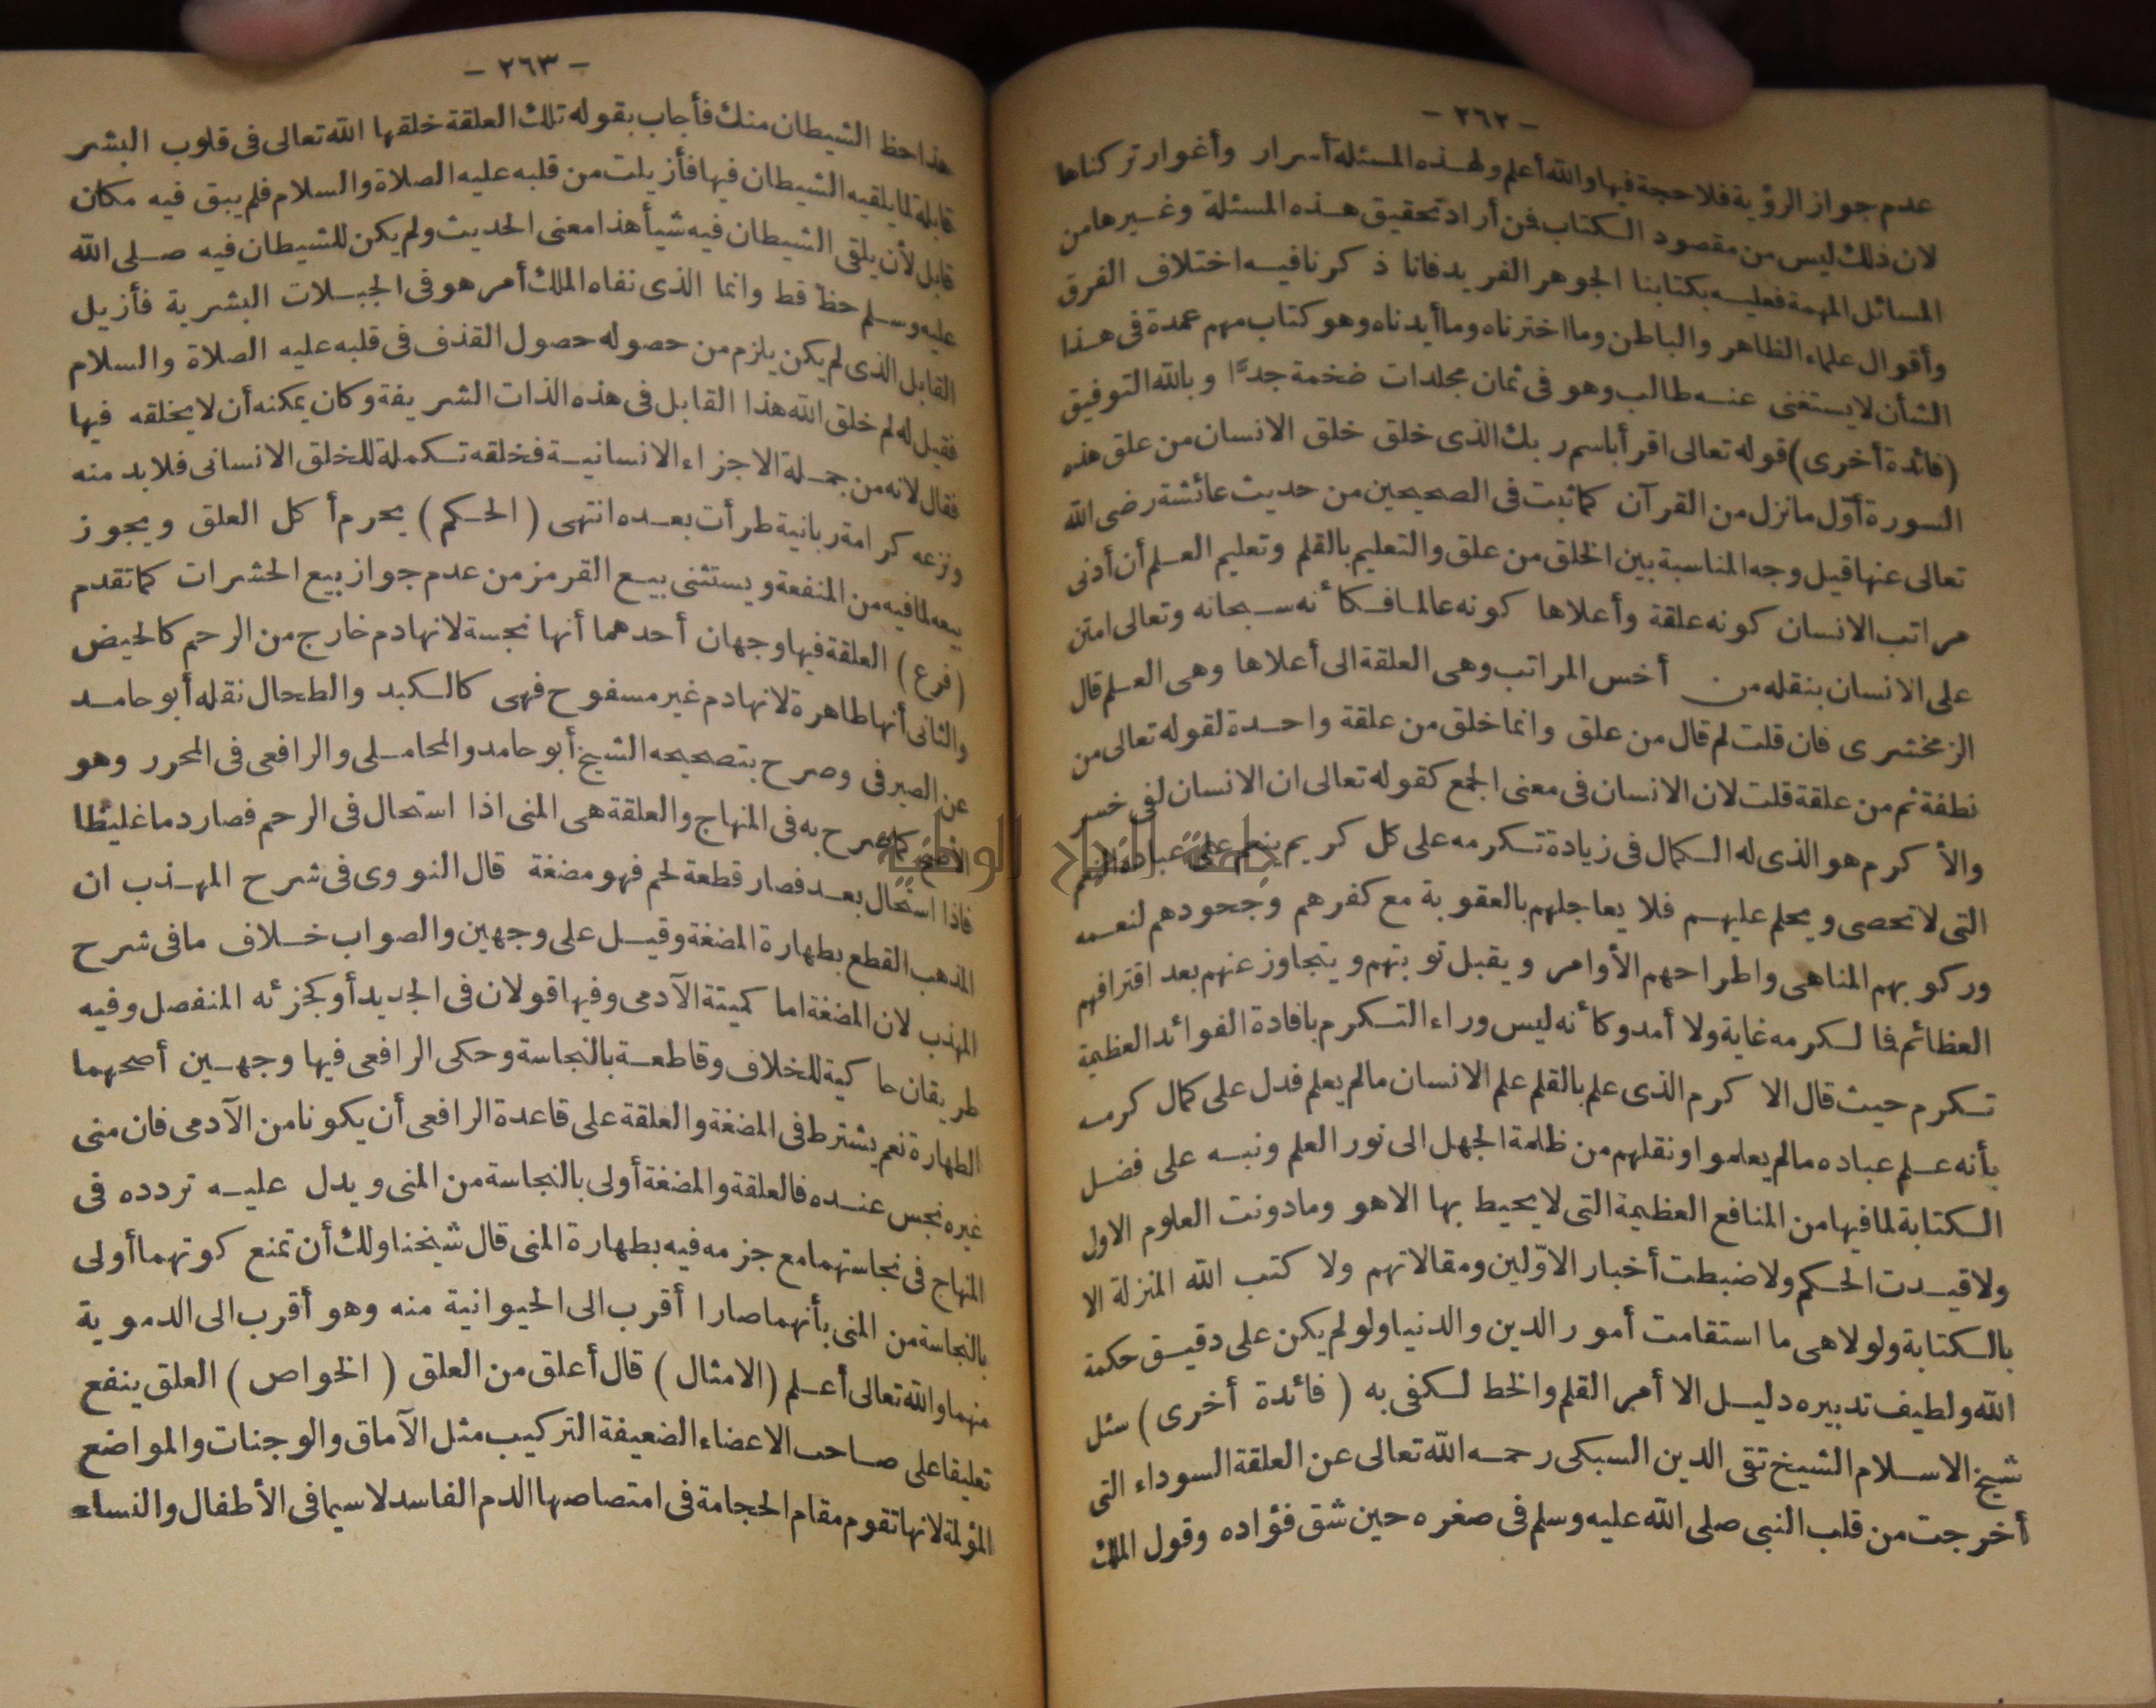 - ٢٦٢ -
عدم جواز الرؤية فلا حجة فيها والله أعلم ولهذه المسئلة أسرار وأغوار تركناها
لان ذلك ليس من مقصود الكتاب فن أراد تحقيق هذه المسئلة وغيرها من
المسائل المهمة فعليه بكتابنا الجوهر الفريد فانا ذكرنا فيه اختلاف الفرق
وأقوال علماء الظاهر والباطن وما اخترناه وما أيدناه وهو كتاب مهم عمدة فى هذا
الشأن لا يستغنى عنه طالب وهو فى ثمان مجلدات ضخمة جدًّا وبالله التوفيق
(فائدة أخرى) قوله تعالى اقرأ باسم ربك الذى خلق خلق الانسان من علق هذه
السورة أوّل ما نزل من القرآن كما ثبت فى الصحيحين من حديث عائشة رضى الله
تعالى عنها قيل وجه المناسبة بين الخلق من علق والتعليم بالقلم وتعليم العلم أن أدنى
مراتب الانسان كونه علقة وأعلاها كونه عالما فكأنه سبحانه وتعالى امتن
على الانسان بنقله من أخس المراتب وهى العلقة الى أعلاها وهى العلم قال
الزمخشرى فان قلت لم قال من علق وانما خلق من علقة واحدة لقوله تعالى من
نطفة ثم من علقة قلت لان الانسان فى معنى الجمع كقوله تعالى ان الانسان لفى خسر
والأكرم هو الذى له الكمال فى زيادة تكرمه على كل كريم ينعم على عباده النعم
التى لا تحصى ويحلم عليهم فلا يعاجلهم بالعقوبة مع كفرهم وجحودهم لنعمه
وركوبهم المناهى واطراحهم الأوامر ويقبل توبتهم ويتجاوز عنهم بعد اقترافهم
العظائم فما لكرمه غاية ولا أمد وكأنه ليس وراء التكرم بافادة الفوائد العظيمة
تكرم حيث قال الاكرم الذى علم بالقلم علم الانسان مالم يعلم فدل على كمال كرمه
بأنه علم عباده مالم يعلموا ونقلهم من ظلمة الجهل الى نور العلم ونبه على فضل
الكتابة لما فيها من المنافع العظيمة التى لا يحيط بها الا هو وما دونت العلوم الاول
ولا قيدت الحكم ولا ضبطت أخبار الاوّلين ومقالاتهم ولا كتب الله المنزلة الا
بالكتابة ولولا هى ما استقامت أمور الدين والدنيا ولو لم يكن على دقيق حكمة
الله ولطيف تدبيره دليل الا أمر القلم والخط لكفى به (فائدة أخرى) سئل
شيخ الاسلام الشيخ تقى الدين السبكى رحمه الله تعالى عن العلقة السوداء التى
أخرجت من قلب النبى صلى الله عليه وسلم فى صغره حين شق فؤاده وقول الملك
- ٢٦٣ -
هذا حظ الشيطان منك فأجاب بقوله تلك العلقة خلقها الله تعالى فى قلوب البشر
قابلة لما يلقيه الشيطان فيها فأزيلت من قلبه عليه الصلاة والسلام فلم يبق فيه مكان
قابل لأن يلقى الشيطان فيه شيأ هذا معنى الحديث ولم يكن للشيطان فيه صلى الله
عليه وسلم حظ قط وانما الذى نفاه الملك أمر هو فى الجبلات البشرية فأزيل
القابل الذى لم يكن يلزم من حصوله حصول القذف فى قلبه عليه الصلاة والسلام
فقيل له لم خلق الله هذا القابل فى هذه الذات الشريفة وكان يمكنه أن لا يخلقه فيها
فقال لانه من جملة الاجزاء الانسانية فخلقه تكملة للخلق الانسانى فلا بد منه
ونزعه كرامة ربانية طرأت بعده انتهى (الحكم) يحرم أكل العلق ويجوز
بيعه لما فيه من المنفعة ويستثنى بيع القرمز من عدم جواز بيع الحشرات كما تقدم
(فرع) العلقة فيها وجهان أحدهما أنها نجسة لانها دم خارج من الرحم كالحيض
والثانى أنها طاهرة لانها دم غير مسفوح فهى كالكبد والطحال نقله أبو حامد
عن الصيرفى وصرح بتصحيحه الشيخ أبو حامد والمحاملى والرافعى فى المحرر وهو
الأصح كما صرح به فى المنهاج والعلقة هى المنى اذا استحال فى الرحم فصار دما غليظا
فاذا استحال بعد فصار قطعة لحم فهو مضغة قال النووى فى شرح المهذب ان
المذهب القطع بطهارة المضغة وقيل على وجهين والصواب خلاف ما فى شرح
المهذب لان المضغة اما كميتة الآدمى وفيها قولان فى الجديد أو كجزئه المنفصل وفيه
طريقان حاكية للخلاف وقاطعة بالنجاسة وحكى الرافعى فيها وجهين أصحهما
الطهارة نعم يشترط فى المضغة والعلقة على قاعدة الرافعى أن يكونا من الآدمى فان منى
غيره نجس عنده فالعلقة والمضغة أولى بالنجاسة من المنى ويدل عليه تردده فى
المنهاج فى نجاستهما مع جزمه فيه بطهارة المنى قال شيخنا ولك أن تمنع كونهما أولى
بالنجاسة من المنى بأنهما صارا أقرب الى الحيوانية منه وهو أقرب الى الدموية
منهما والله تعالى أعلم (الامثال) قال أعلق من العلق (الخواص) العلق ينفع
تعليقا على صاحب الاعضاء الضعيفة التركيب مثل الآماق والوجنات والمواضع
المؤلمة لانها تقوم مقام الحجامة فى امتصاصها الدم الفاسد لا سيما فى الأطفال والنساء
جامعة النجاح الوطنية